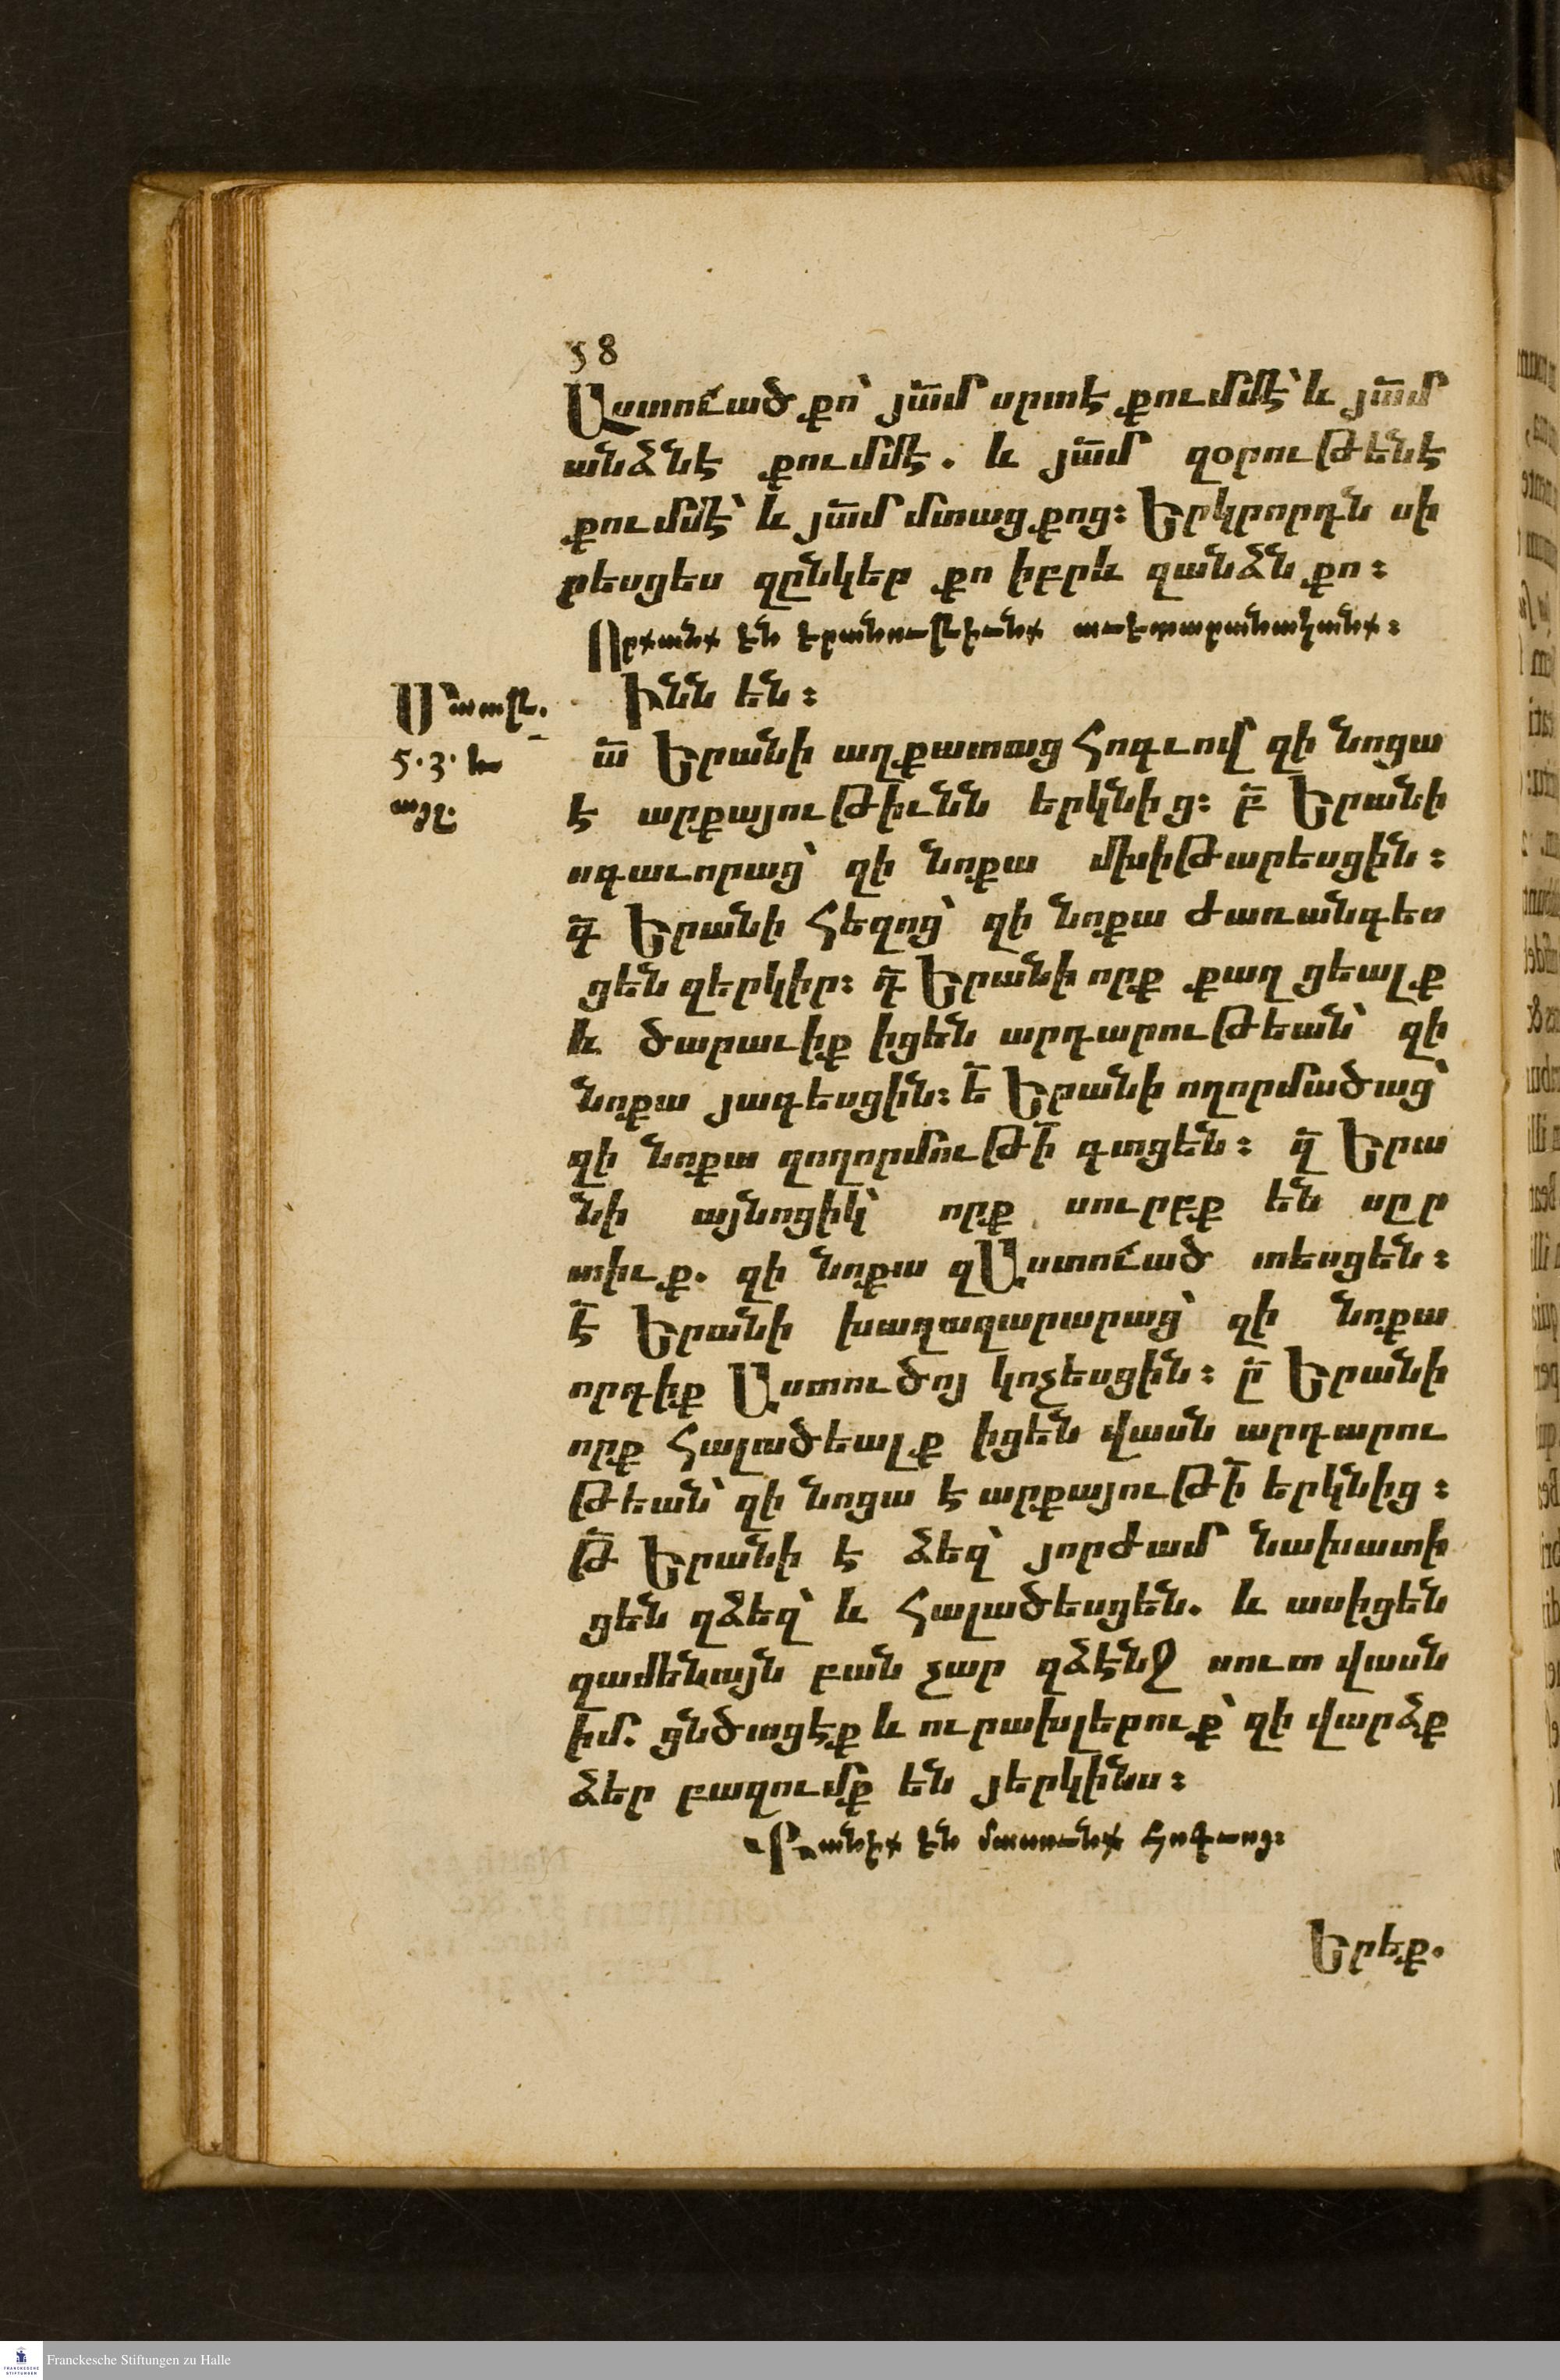 58
Աստուած քո՝ յամ սրտէ քումմէ՝ և յամ
անձնէ քումմէ. և յամ զօրութենէ
քումմէ՝ և յամ մտաց քոց։ Երկրորդն սի
րեսցես զընկեր քո իբրև զանձն քո։
Որքանք են երանութիւնք աւետարանականք։
Ինն են։
Մատթ.
5.3. և
այլ.
ա Երանի աղքատաց հոգւով զի նոցա
է արքայութիւնն երկնից։ բ Երանի
սգաւորաց՝ զի նոքա մխիթարեսցին։
գ Երանի հեզոց՝ զի նոքա ժառանգես
ցեն զերկիր։ դ Երանի որք քաղցեալք
և ծարաւիք իցեն արդարութեան՝ զի
նոքա յագեսցին։ ե Երանի ողորմածաց՝
զի նոքա զողորմութի գտցեն։ զ Երա
նի այնոցիկ՝ որք սուրբք են սըր
տիւք. զի նոքա զԱստուած տեսցեն։
է Երանի խաղաղարարաց՝ զի նոքա
որդիք Աստուծոյ կոչեսցին։ ը Երանի
որք հալածեալք իցեն վասն արդարու
թեան՝ զի նոցա է արքայութի երկնից։
թ Երանի է ձեզ՝ յորժամ նախատի
ցեն զձեզ՝ և հալածեսցեն. և ասիցեն
զամենայն բան չար զձէնջ սուտ վասն
իմ. ցնծացէք և ուրախլերուք՝ զի վարձք
ձեր բազումք են յերկինս։
Քանիք են մասունք հոգւոց։
Երեք.
Franckesche Stiftungen zu Halle